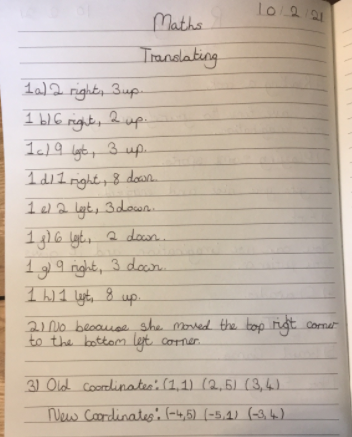 10/2/21
Maths
Translating
1a) 2 right, 3 up.
1 b) 6 right, 2 up.
1 c) 9 left, 3 up.
1 d) 1 right, 8 down.
1 e) 2 left, 3 down.
1 f) 6 left, 2 down.
1 g) 9 right, 3 down.
1 h) 1 left, 8 up.
2) No because she moved the top right corner
to the bottom left corner.
3) Old coordinates: (1,1) (2,5) (3,4)
New Coordinates: (-4,5) (-5,1) (-3,4)